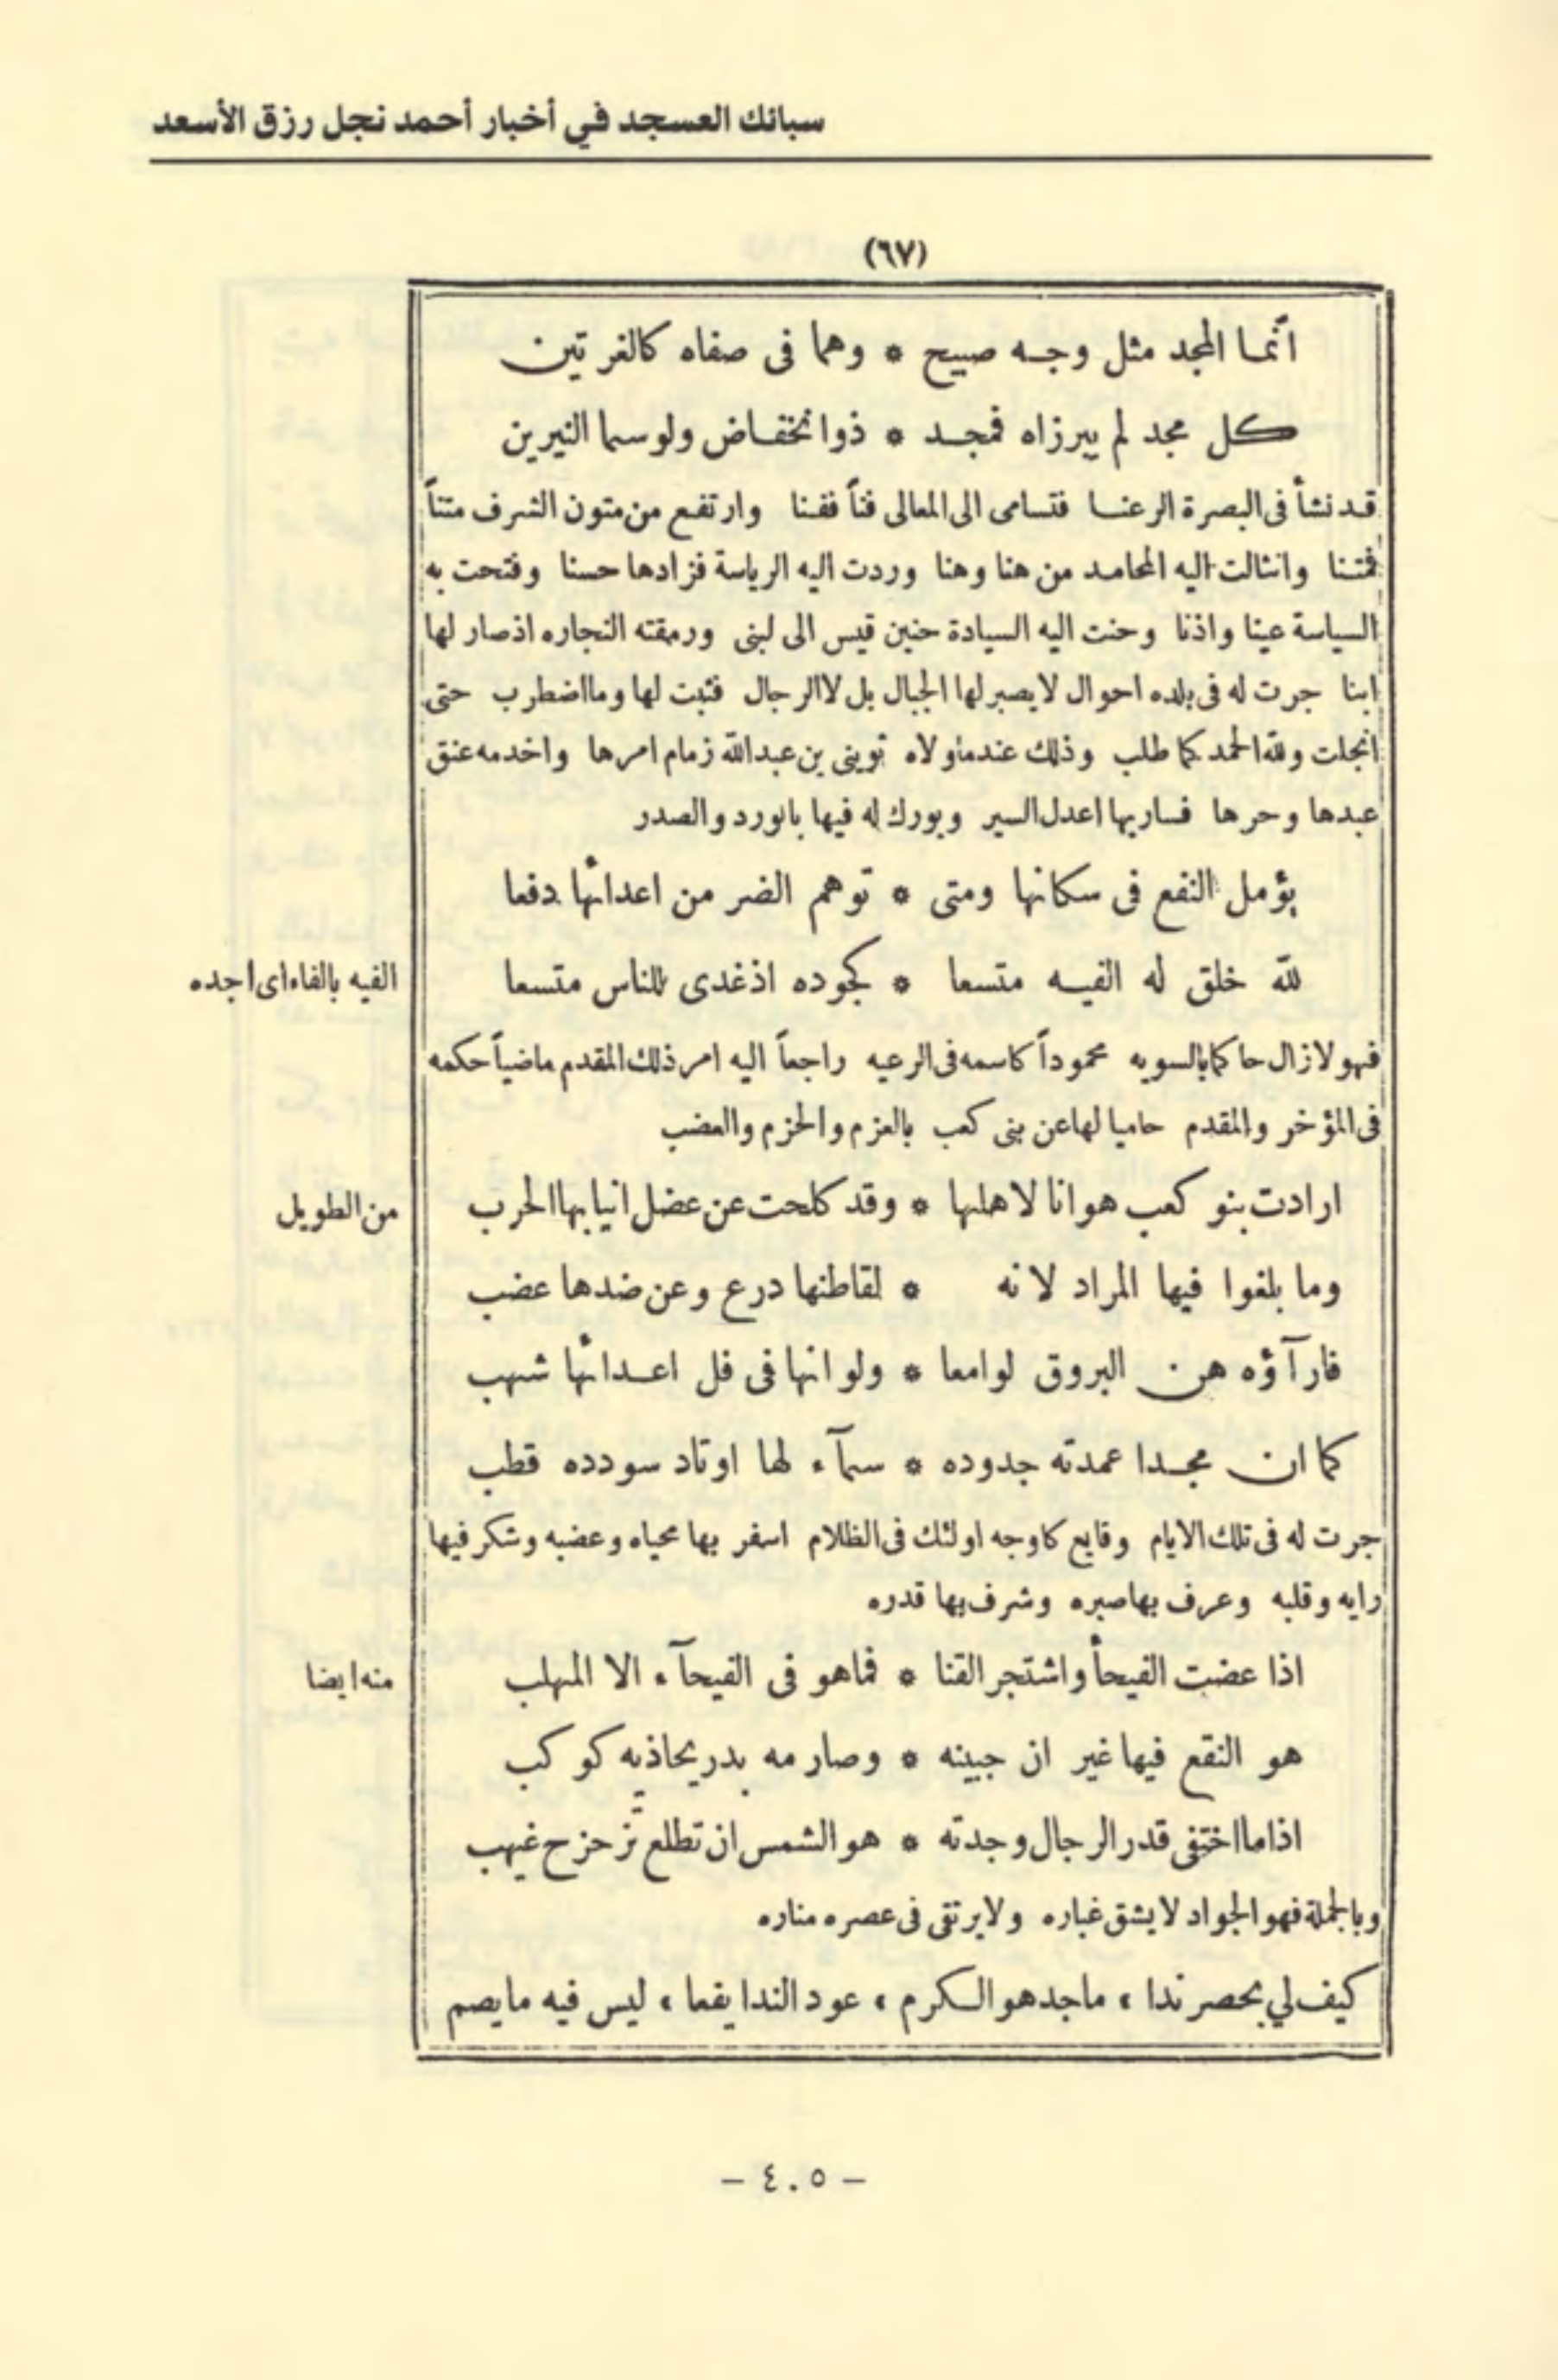 سبائك العسجد في أخبار أحمد نجل رزق الأسعد
(٦٧)
انّما المجد مثل وجه صبيح * وهما فى صفاه كالغرتين
كل مجد لم يبرزاه فمجد * ذو انخفاض ولو سما النيرين
قد نشأ فى البصرة الرعنا فتسامى الى المعالى فنّاً ففنا وارتفع من متون الشرف متناً
فمتنا وانثالت اليه المحامد من هنا وهنا وردت اليه الرياسة فزادها حسنا وفتحت به
السياسة عينا واذنا وحنت اليه السيادة حنين قيس الى لبنى ورمقته النجاره اذ صار لها
ابنا جرت له فى بلده احوال لا يصبر لها الجبال بل لا الرجال فثبت لها وما اضطرب حتى
انجلت ولله الحمد كما طلب وذلك عندما ولاه ثوينى بن عبدالله زمام امرها واخدمه عنق
عبدها وحرها فسار بها اعدل السير وبورك له فيها بالورد والصدر
يؤمل النفع فى سكانها ومتى * توهم الضر من اعدائها دفعا
لله خلق له الفيه متسعا * كجوده اذ غدى للناس متسعا
الفيه بالفاء اى اجده
فهو لا زال حاكما بالسويه محموداً كاسمه فى الرعيه راجعاً اليه امر ذلك المقدم ماضياً حكمه
فى المؤخر والمقدم حاميا لها عن بنى كعب بالعزم والحزم والعضب
ارادت بنو كعب هوانا لاهلها * وقد كلحت عن عضل انيابها الحرب
من الطويل
وما بلغوا فيها المراد لانه * لقاطنها درع وعن ضدها عضب
فارآؤه هن البروق لوامعا * ولو انها فى فل اعدائها شهب
كما ان مجدا عمدته جدوده * سمآء لها اوتاد سودده قطب
جرت له فى تلك الايام وقايع كاوجه اولئك فى الظلام اسفر بها محياه وعضبه وشكر فيها
رايه وقلبه وعرف بها صبره وشرف بها قدره
اذا عضت الفيحأ واشتجر القنا * فما هو فى الفيحآء الا المهلب
منه ايضا
هو النقع فيها غير ان جبينه * وصارمه بدر يحاذيه كوكب
اذا ما اختفى قدر الرجال وجدته * هو الشمس ان تطلع تزحزح غيهب
وبالجملة فهو الجواد لا يشق غباره ولا يرتقى فى عصره مناره
كيف لي بحصر ندا ، ماجد هو الكرم ، عود الندا يفعا ، ليس فيه ما يصم
- ٤٠٥ -